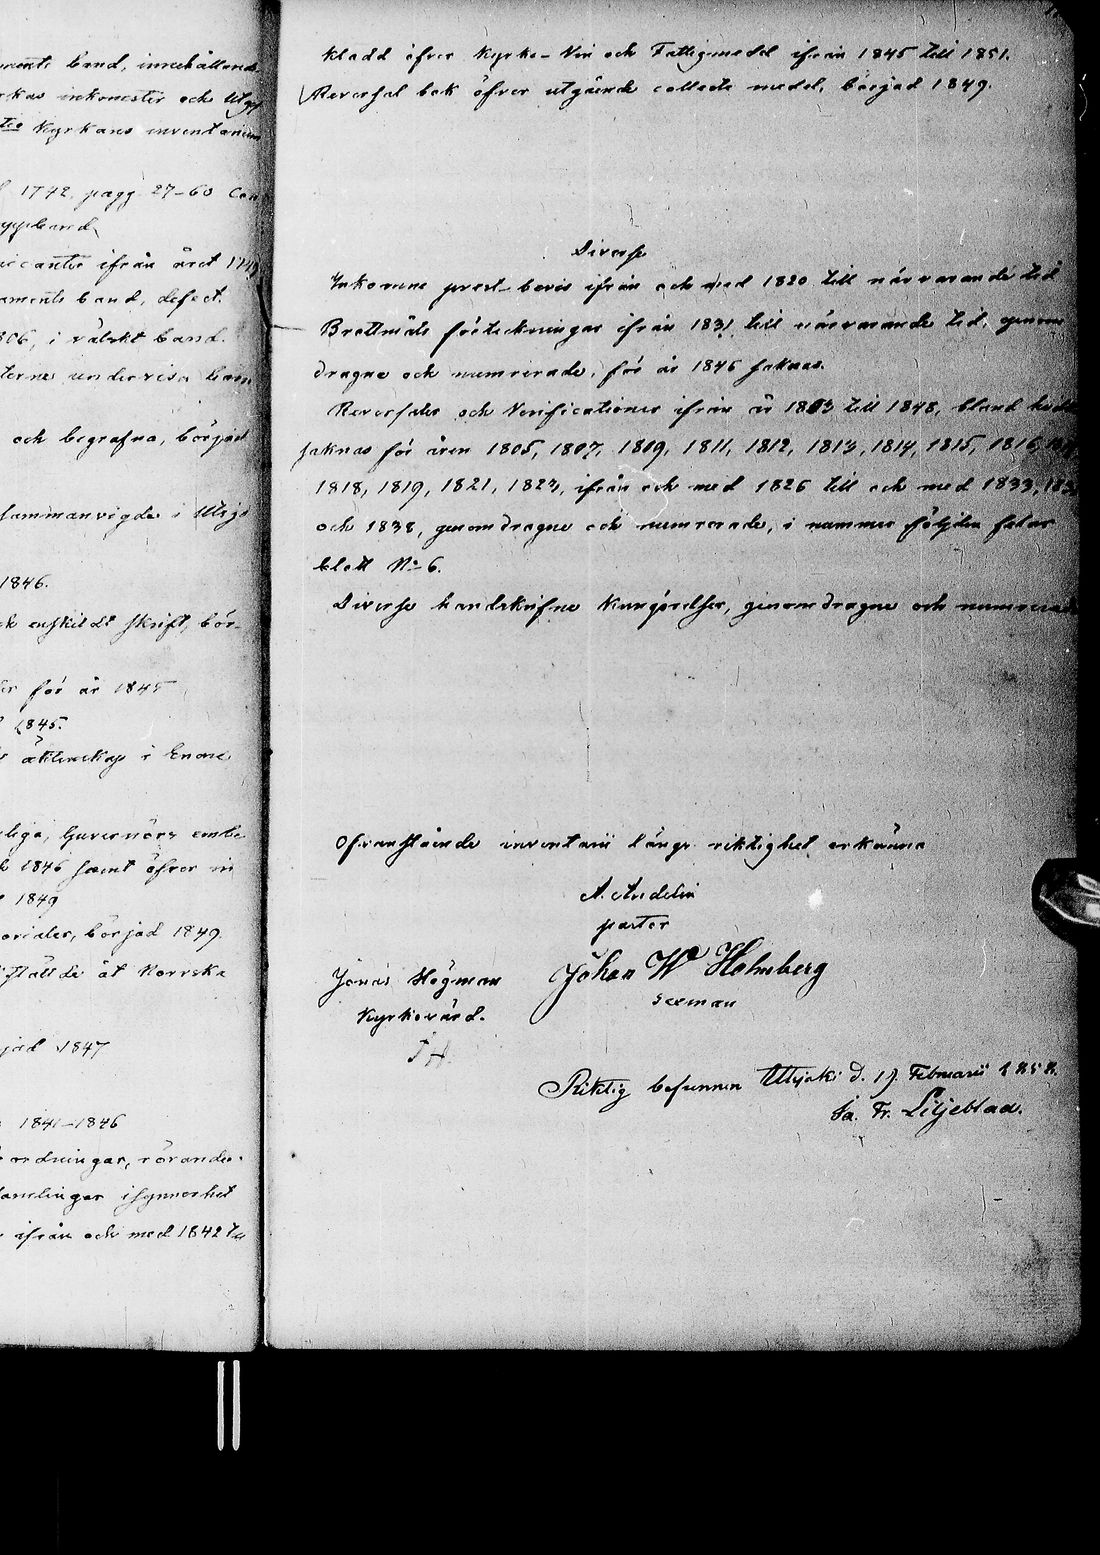 ments band, innehållande
rkas inkomster och Utgif
ter Kyrkans inventarium
1742, pagg. 27–60
ryggband,
nicanter ifrån året 1749
aments band, defect.
806, i valskt band.
terne undervisa barn
och begrafna, börjad
sammanvigde i Utsjo
1846.
ch enskildt skrift, bör-
för år 1845
1845.
äktenskap i Enare
liga, Guvernörs embe-
1846 samt öfver in
1849
orialer, börjad 1849.
åt Norrska
jad 1847
1841–1846
ordningar, rörande
samlingar isynnerhet
ifrån och med 1842 til
Kladd öfver Kyrko- Vin och Fattigmedel ifrån 1845 till 1851.
Reversal bok öfver utgående collecte medel, börjad 1849.
Diverse
Inkomne prest-bevis ifrån och med 1820 till närvarande tid
Brottmåls förteckningar ifrån 1831 till närvarande tid, genom
dragne och numrerade, för år 1846 saknas.
Reversaler och Verificationer ifrån år 1803 till 1848, bland hvilka
saknas för åren 1805, 1807, 1809, 1811, 1812, 1813, 1814, 1815, 1816,
1818, 1819, 1821, 1823, ifrån och med 1826 till och med 1833,
och 1838, genomdragne och numrerade, i nummer följden felar
blott No 6.
Diverse handskrifne Kungörelser, genomdragne och numrerade
Ofvanstående inventarii längs riktighet erkänna
A. Andelin
pastor
Jonas Högman
Kyrkovärd.
J H
Johan W Holmberg
sexman
Riktig befunnen Utsjoki d. 17. Februarii 1858.
Ja. Fr. Liljeblad.